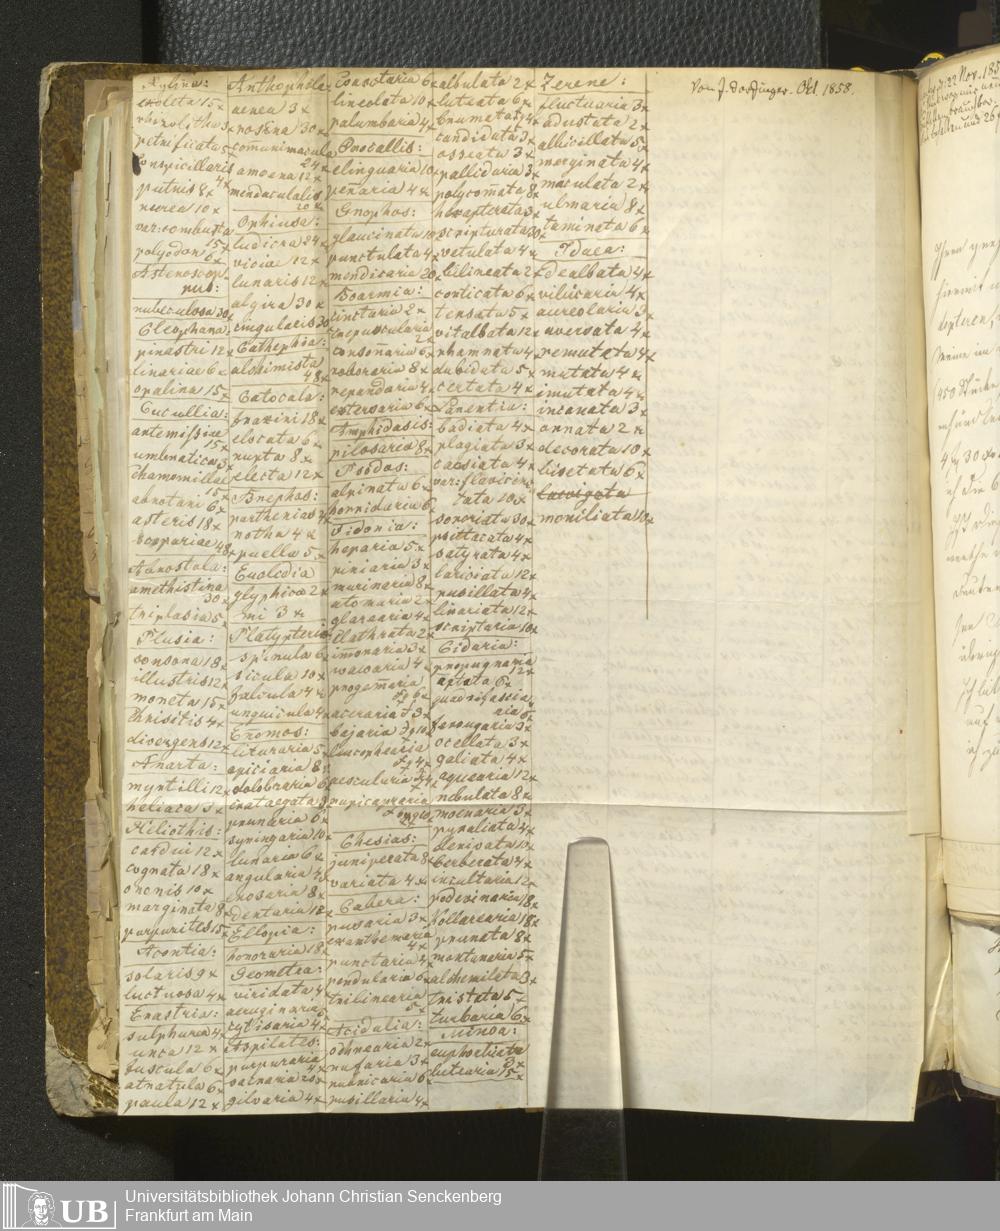 Xylina:
exoleta 15x
rhizolitha 3x
petrificata 5x
Conspicillaris 4x
putris 8x
aurea 10x
var: combusta 15x
polyodon 6x
Asteroscop
nubeculosa 30x
Cleophana:
pinastri 12x
linariae 6x
opalina 15x
Cucullia:
artemisiae 15x
umbratica 3x
Chamomillae 15x
abrotani 6x
asteris 18x
scopariae 48x
amethistina 30x
triplasia 5x
Plusia:
consona 18x
illustris 12x
moneta 15x
Chrisitis 4x
divergens 12x
Anarta:
myrtilli 12x
heliaca 3x
Heliothis:
cardui 12x
cognata 18x
ononis 10x
marginata 8x
purpurites 15x
Acontia:
solaris 9x
luctuosa 4x
Erastria:
sulphurea 4x
unca 12x
fuscula 6x
atratula 6x
paula 12x
Anthophila:
aenea 3x
rosina 30x
comunimacula 24x
amoena 12x
mendaculalis 20x
Ophiusa:
ludicra 24x
vicia 12x
lunaris 12x
algira 30x
cingularis 30x
Cathephia:
alchimista 48x
Catocala:
fraxini 18x
elocata 6x
nupta 8x
electa 12x
Brephos:
parthenias 4x
notha 4x
puella 5x
Euclidia
glyphica 2x
mi 3x
Platypterix
spinula 6x
sicula 10x
falcula 4x
unguicula 4x
Enomos:
lituraria 5x
apiciaria 8x
dolobraria 6x
crataegata 3x
prunaria 6x
syringaria 10x
lunaria 6x
angularia 4x
erosaria 8x
dentaria 18x
Ellopia:
honoraria 18x
Geometra:
viridata 4x
aeruginaria 5x
cytisaria 4x
Aspilates:
purpuraria 4x
vacnaria 20x
gilvaria 4x
lineolata 10x
palumbaria 4x
Crocallis:
elinguaria 10x
penaria 4x
Gnophos:
glaucinata 10x
punctulata 4x
mendicaria 20x
Boarmia:
cinctaria 2x
crepuscularia 2x
consonaria 6x
roboraria 8x
repandaria 4x
extersaria 6x
Amphidasis:
pilosaria 8x
Psodos:
alpinata 6x
horridaria 6x
Fidonia:
heparia 5x
piniaria 3x
murinaria 8x
atomaria 2x
glarearia 4x
Clathrata 2x
imoraria 3x
wavaria 4x
progemaria
♂♀ 6x
aceraria ♂ 3x
bajaria ♂♀ 10x
leucophearia
♂♀ 4x
aescularia
rupicapraria
Chesias:
juniperata 8x
variata 4x
Cabera:
pusaria 3x
exanthemaria 4x
punctaria 4x
pendularia 6x
trilinearia 5x
Acidalia:
ochrearia 2x
rufaria 3x
rubricaria 6x
pusillaria 4x
albulata 2x
luteata 6x
brumata 4x
candidata 3x
osseata 3x
pallidaria 3x
polycomata 8x
hexapterata 3x
scripturata 30x
vetulata 4x
bilineata 2x
corticata 6x
tersata 5x
vitalbata 12x
rhamnata 4x
dubitata 5x
certata 4x
Larentia:
badiata 4x
plagiata 3x
caesiata 4x
var: flavicinc
tata 10x
sororiata 30x
psittacata 4x
satyrata 4x
lariciata 12x
pusillata 4x
linariata 12x
scriptaria 10x
Cidaria:
propugnaria 12x
aptata 6x
quadrifascia
ria 6x
ferrugaria 3x
ocellata 3x
galiata 4x
aquearia 12x
ribulata 8x
moeraria 3x
pyraliata 4x
derivata 10x
berberata 4x
incultaria 12x
podevinaria 18x
Kollararia 18x
prunata 8x
montanaria 5x
alchemilata 3x
tristata 5x
turbaria 6x
Minoa:
euphorbiata 3x
lutearia 15x
Zerene:
fluctuaria 3x
adustata 2x
albicillata 5x
marginata 4x
maculata 2x
ulmaria 8x
taminata 6x
Idaea:
dealbata 4x
vibicaria 4x
aureolaria 3x
aversata 4x
remutata 4x
mutata 4x
imutata 4x
incanata 3x
ornata 2x
decorata 10x
bisetata 6x
laevigata
moniliata 10x
Von J. Dorfinger. Okt. 1858.
Universitätsbibliothek Johann Christian Senckenberg
Frankfurt am Main
UB